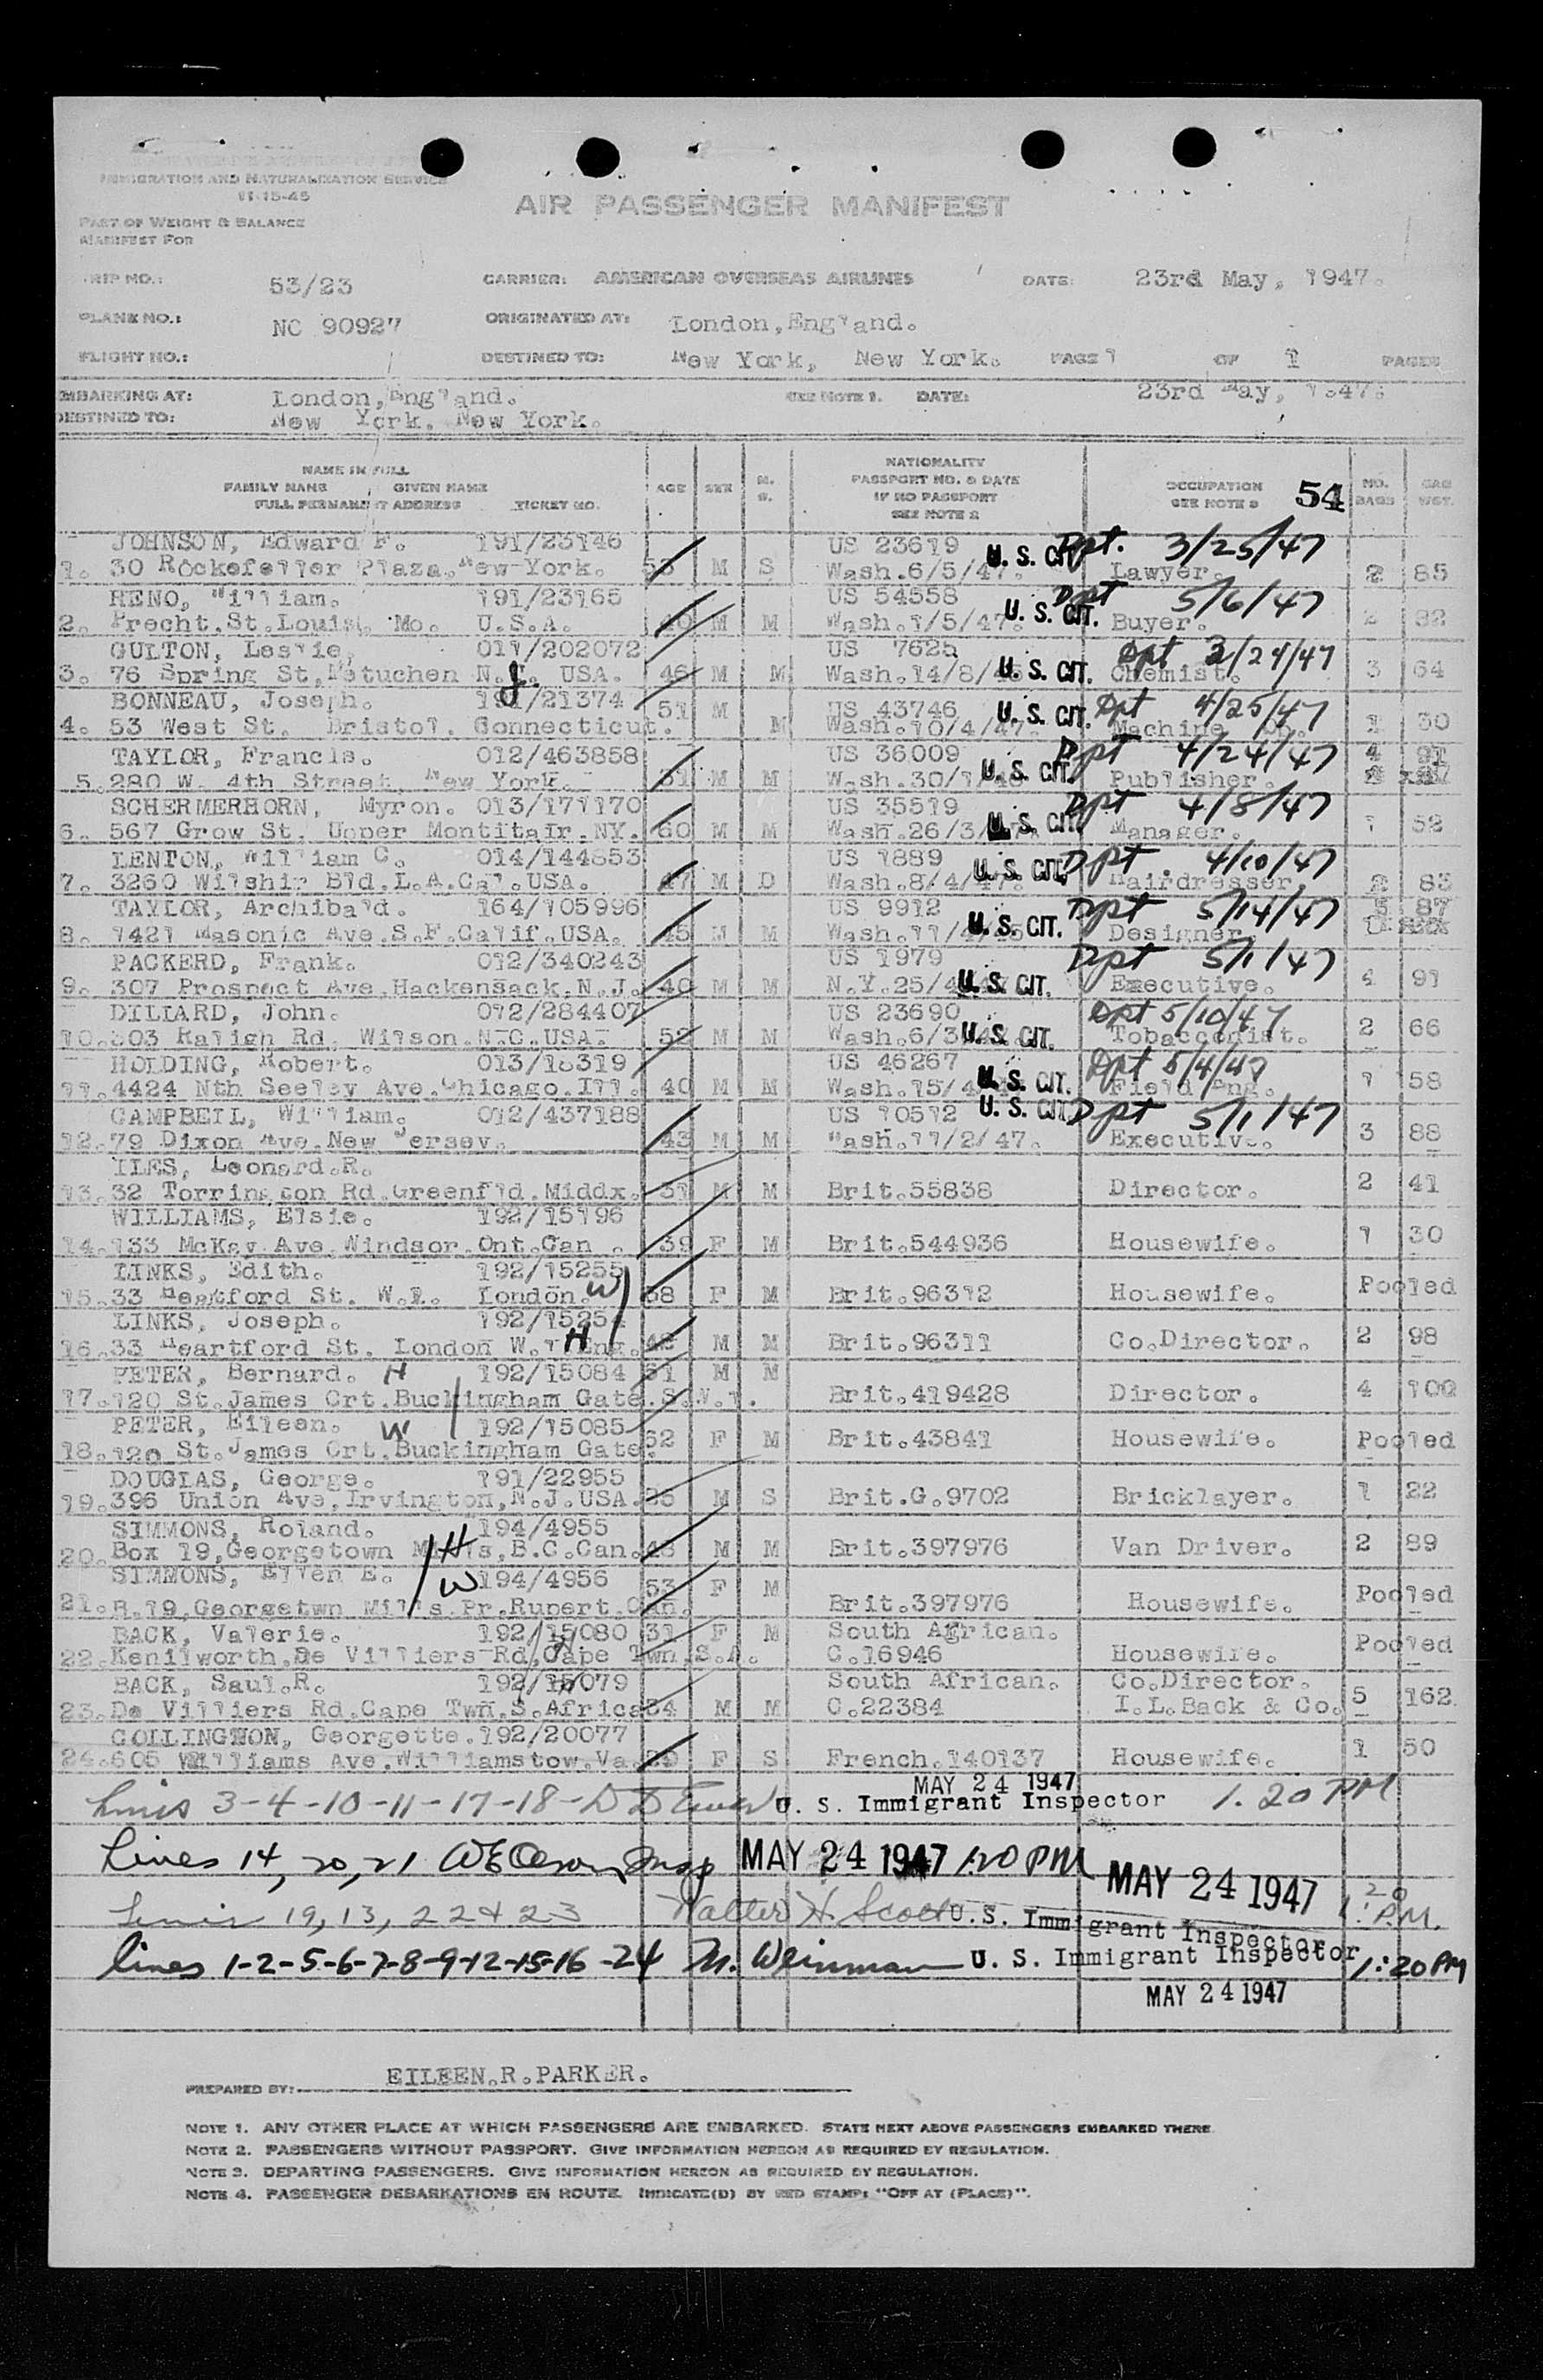 IMMIGRATION AND NATURALIZATION SERVICE
11-15-45
PART OF WEIGHT & BALANCE
MANIFEST FOR
AIR PASSENGER MANIFEST
RIP NO.: 53/23 CARRIER: AMERICAN OVERSEAS AIRLINES DATE: 23rd May, 1947.
PLANE NO.: NC 90927 ORIGINATED AT: London, England.
FLIGHT NO.: DESTINED TO: New York, New York. PAGE 1 OF 1 PAGES
MBARKING AT: London, England. SEE NOTE 1. DATE: 23rd May, 1947.
DESTINED TO: New York. New York.
NAME IN FULL
FAMILY NAME GIVEN NAME
FULL PERMANENT ADDRESS TICKET NO. AGE SEX M. S. NATIONALITY PASSPORT NO. & DATE IF NO PASSPORT SEE NOTE 2 OCCUPATION SEE NOTE 3 54 NO. BAGS BAG WGT.
JOHNSON, Edward F. 191/23146 US 23619 U. S. CIT. Dpt. 3/25/47
1. 30 Rockefeller Plaza. New York. 53 M S Wash.6/5/47. Lawyer. 2 85
RENO, William. 191/23165 US 54558 Dpt 5/6/47
2. Precht.St.Louis. Mo. U.S.A. 40 M M Wash.1/5/47. U. S. CIT. Buyer. 2 82
GULTON, Leslie. 011/202072 US 7625 Dpt 2/24/47
3. 76 Spring St, Metuchen N.J. USA. 46 M M Wash.14/8/46 U. S. CIT. Chemist. 3 64
BONNEAU, Joseph. 191/21374 51 M US 43746 U. S. CIT. Dpt 4/25/47
4. 53 West St. Bristol. Connecticut. M Wash.10/4/47. Machine Op. 1 30
TAYLOR, Francis. 012/463858 US 36009 Dpt 4/24/47 4 91
5. 280 W. 4th Street, New York. 51 M M Wash.30/1/46 U. S. CIT. Publisher.
SCHERMERHORN, Myron. 013/171170 US 35519 Dpt 4/8/47
6. 567 Grow St. Upper Montitair.NY. 60 M M Wash.26/3/47. U. S. CIT. Manager. 1 52
LENTON, William C. 014/144853 US 1889 U. S. CIT. Dpt. 4/10/47
7. 3260 Wilshir Bld.L.A.Cal.USA. 47 M D Wash.8/4/47. Hairdresser. 2 83
TAYLOR, Archibald. 164/105996 US 9912 Dpt 5/14/47 5 87
8. 1421 Masonic Ave.S.F.Calif.USA. 45 M M Wash.11/4/46 U. S. CIT. Designer.
PACKERD, Frank. 012/340243 US 1979 Dpt 5/1/47
9. 307 Prospect Ave.Hackensack.N.J. 40 M M N.Y.25/4/47 U. S. CIT. Executive. 4 91
DILIARD, John. 012/284407 US 23690 Dpt 5/10/47
10. 803 Raligh Rd. Wilson.N.C.USA. 52 M M Wash.6/3/46. U. S. CIT. Tobacconist. 2 66
HOLDING, Robert. 013/18319 US 46267 Dpt 5/4/47
11. 4424 Nth Seeley Ave.Chicago.Ill. 40 M M Wash.15/4/47 U. S. CIT. Field Eng. 1 58
CAMPBEIL, William. 012/437188 US 10512 U. S. CIT. Dpt 5/1/47
12. 79 Dixon Ave.New Jersey. 43 M M Wash.11/2/47. Executive. 3 88
ILES, Leonard.R.
13. 32 Torrington Rd.Greenfld.Middx. 31 M M Brit.55838 Director. 2 41
WILLIAMS, Elsie. 192/15196
14. 133 McKay Ave.Windsor.Ont.Can. 39 F M Brit.544936 Housewife. 1 30
LINKS, Edith. 192/15255
15. 33 Heartford St. W.1. London. W 38 F M Brit.96312 Housewife. Pooled
LINKS, Joseph. 192/15254
16. 33 Heartford St. London W.1 H Eng. 42 M M Brit.96311 Co.Director. 2 98
PETER, Bernard. H 192/15084 51 M M
17. 120 St.James Crt.Buckingham Gate.S.W.1. Brit.419428 Director. 4 100
PETER, Eileen. W 192/15085
18. 120 St.James Crt.Buckingham Gate. 52 F M Brit.43841 Housewife. Pooled
DOUGLAS, George. 191/22955
19. 396 Union Ave, Irvington, N.J.USA. 25 M S Brit.G.9702 Bricklayer. 1 22
SIMMONS, Roland. 194/4955
20. Box 19, Georgetown Mills, B.C.Can. H 48 M M Brit.397976 Van Driver. 2 89
SIMMONS, Ellen E. W 194/4956 53 F M
21. B.19, Georgetwn Mills.Pr.Rupert.Can. Brit.397976 Housewife. Pooled
BACK, Valerie. 192/15080 31 F M South African.
22. Kenilworth.De Villiers Rd.Cape Twn.S.A. C.16946 Housewife. Pooled
BACK, Saul.R. 192/15079 South African. Co.Director.
23. De Villiers Rd.Cape Twn.S.Africa 34 M M C.22384 I.L.Back & Co. 5 162
COLLINGTON, Georgette. 192/20077
24. 605 Williams Ave.Williamstow.Va. 29 F S French.140137 Housewife. 1 50
MAY 24 1947
Lines 3-4-10-11-17-18- U. S. Immigrant Inspector 1.20 PM
Lines 14, 20, 21 Insp MAY 24 1947 1:20 PM
MAY 24 1947 1:20 PM.
Lines 19, 13, 22 & 23 Walter H. Scott U. S. Immigrant Inspector
lines 1-2-5-6-7-8-9-12-15-16-24 M. Weinman U. S. Immigrant Inspector 1:20 PM
MAY 24 1947
PREPARED BY: EILEEN.R.PARKER.
NOTE 1. ANY OTHER PLACE AT WHICH PASSENGERS ARE EMBARKED. STATE NEXT ABOVE PASSENGERS EMBARKED THERE.
NOTE 2. PASSENGERS WITHOUT PASSPORT. GIVE INFORMATION HEREON AS REQUIRED BY REGULATION.
NOTE 3. DEPARTING PASSENGERS. GIVE INFORMATION HEREON AS REQUIRED BY REGULATION.
NOTE 4. PASSENGER DEBARKATIONS EN ROUTE. INDICATE(D) BY RED STAMP: "OFF AT (PLACE)".